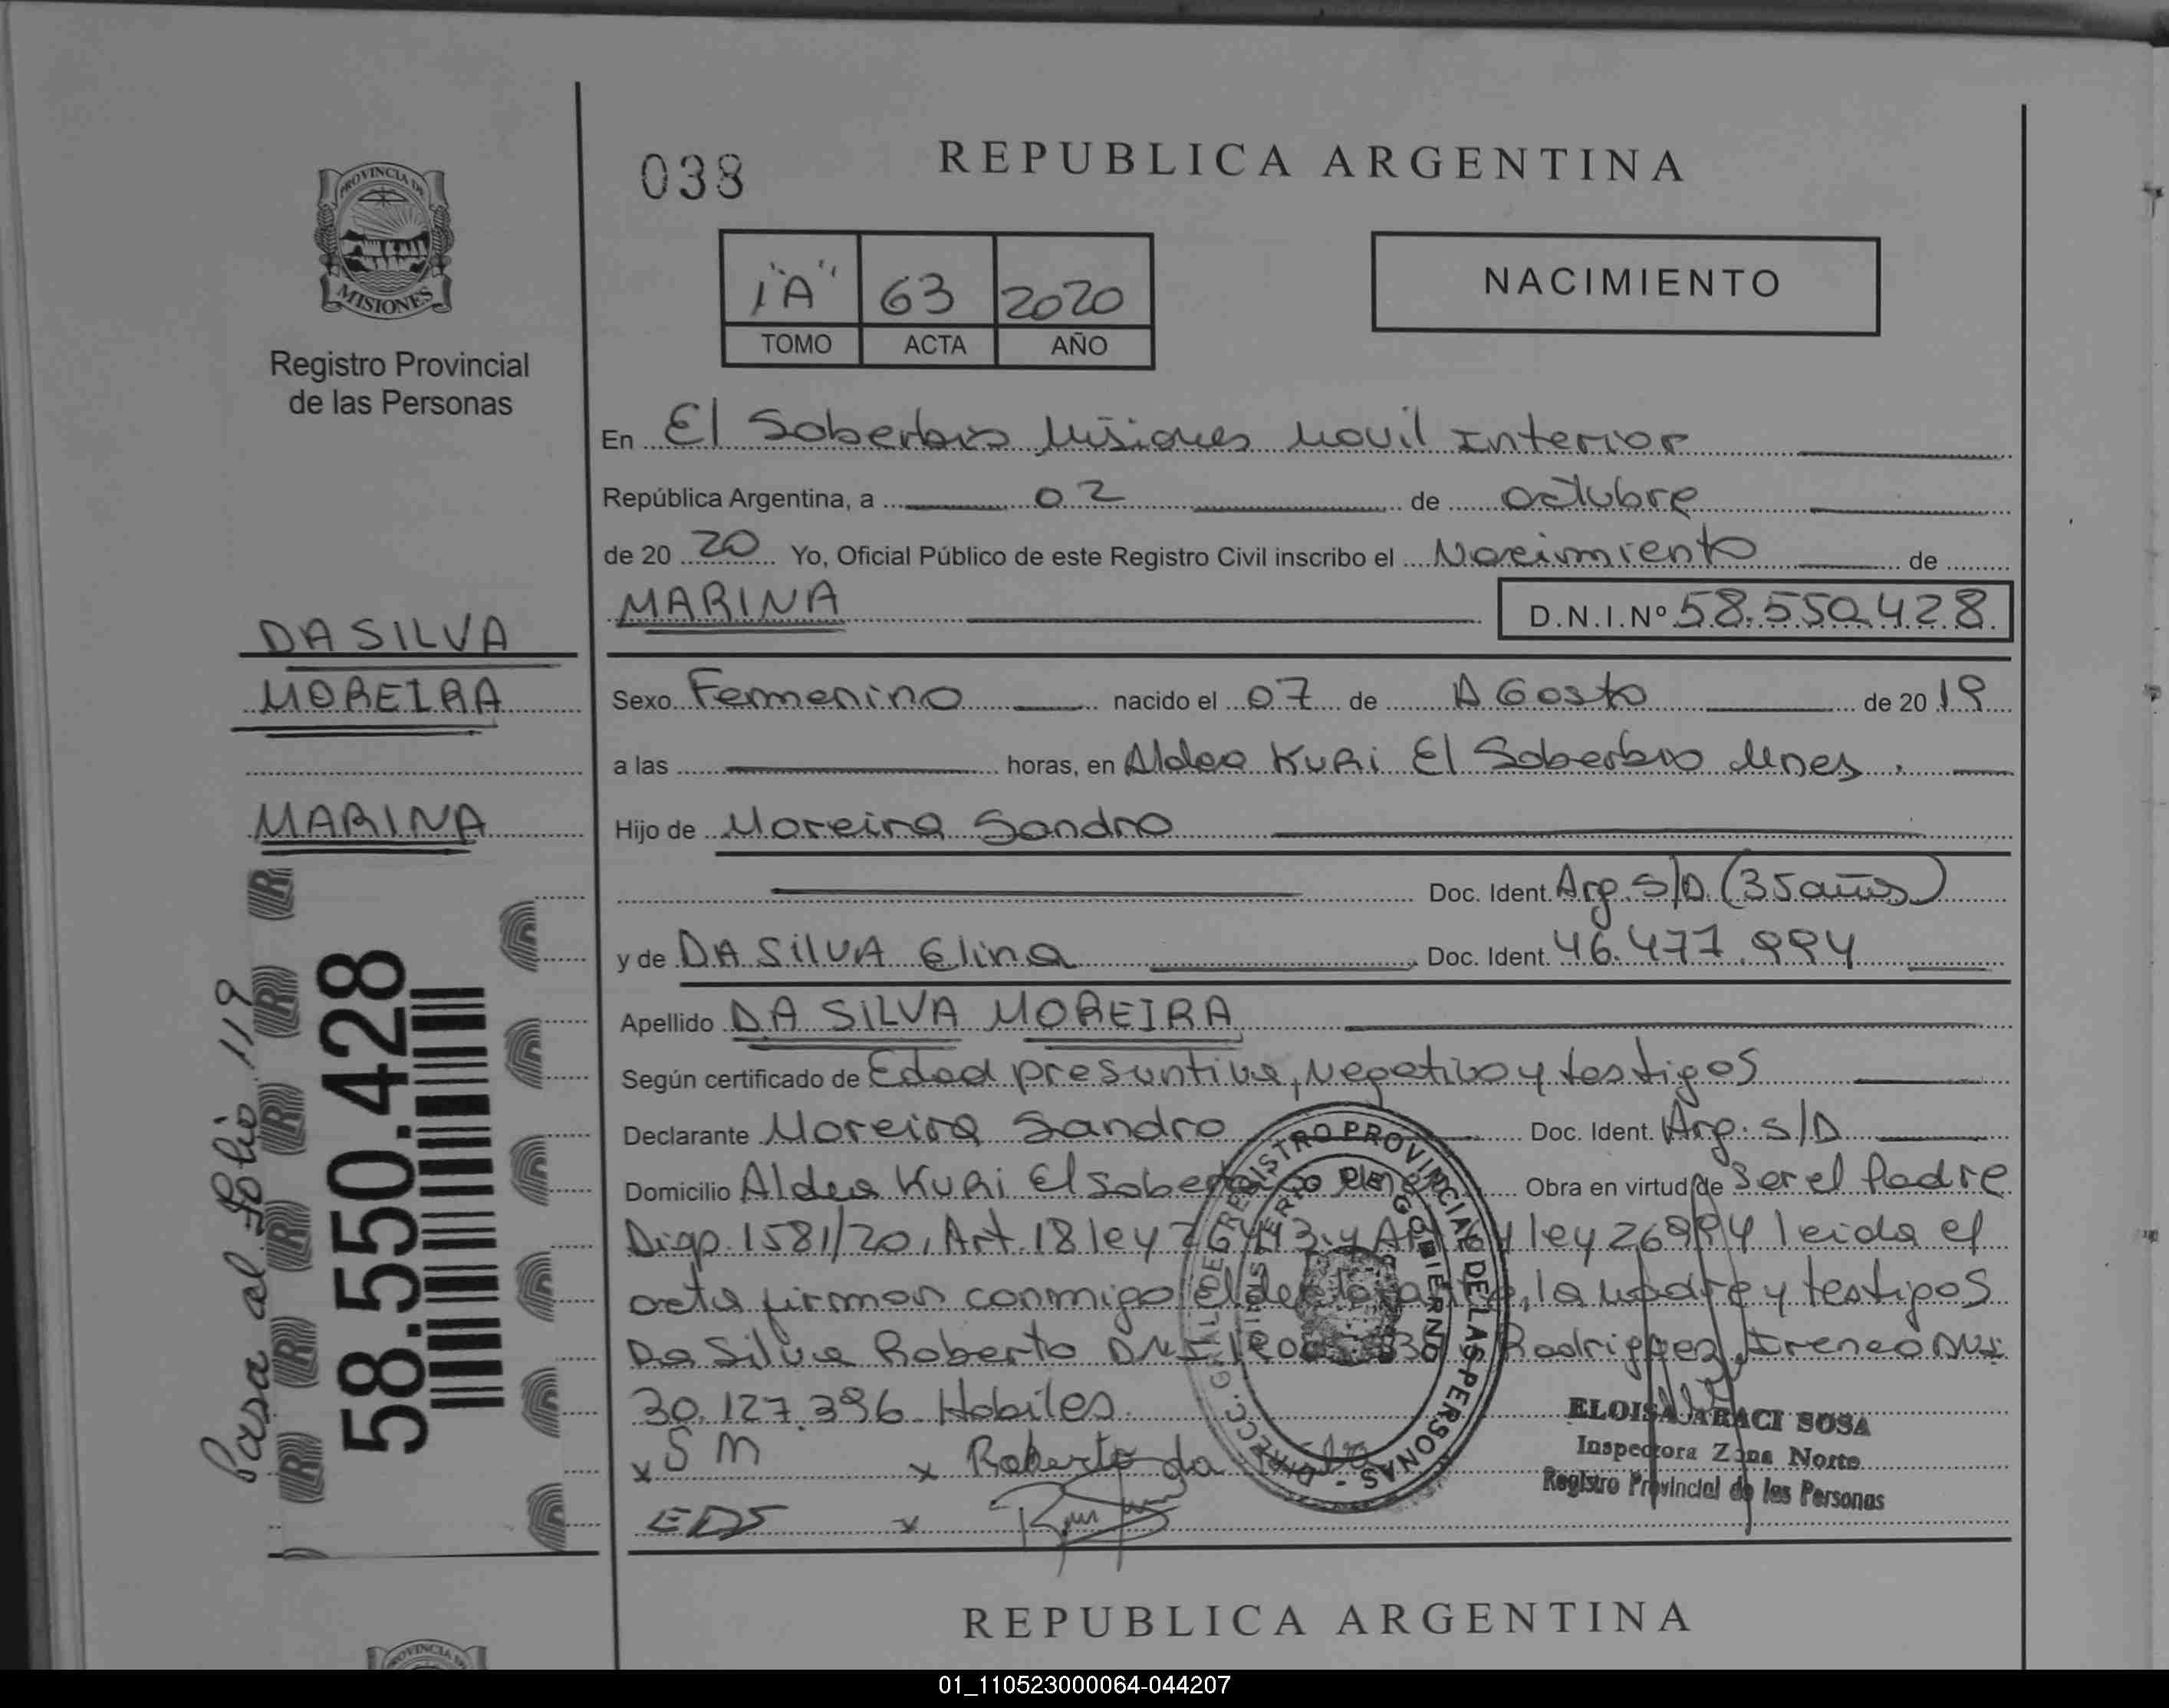 PROVINCIA DE
MISIONES
Registro Provincial
de las Personas
DA SILVA
MOREIRA
MARINA
Pasa al Folio 119
58.550.428
038
REPUBLICA ARGENTINA
"A" 63 2020
TOMO ACTA AÑO
NACIMIENTO
En El Soberbio Misiones Movil Interior
República Argentina, a 02 de octubre
de 20 20 Yo, Oficial Público de este Registro Civil inscribo el Nacimiento de
MARINA D.N.I.Nº 58.550.428
Sexo Femenino nacido el 07 de AGosto de 20 19
a las horas, en Aldea KuRi El Soberbio Mnes.
Hijo de Moreira Sandro
Doc. Ident. Arg. S/D. (35 años)
y de DA SilVA Elina Doc. Ident. 46.477.994
Apellido DA SILVA MOREIRA
Según certificado de Edad presuntiva, Negativo y testigos
Declarante Moreira Sandro Doc. Ident. Arg. S/D
Domicilio Aldea KuRi El Soberbio Mnes Obra en virtud de Ser el Padre
Disp. 1581/20, Art. 18 ley 26413 y ley 26994 leida el
acta firman conmigo el declarante, la madre y testigos
Da Silva Roberto DNI Rodriguez, Ireneo DNI
30.127.396 Habiles.
x S M x Roberto da
EDS x
DIRECC. GRAL DE REGISTRO PROVINCIAL DE LAS PERSONAS -
MINISTERIO DE GOBIERNO
ELOISA ARACI SOSA
Inspectora Zona Norte
Registro Provincial de las Personas
REPUBLICA ARGENTINA
01_110523000064-044207